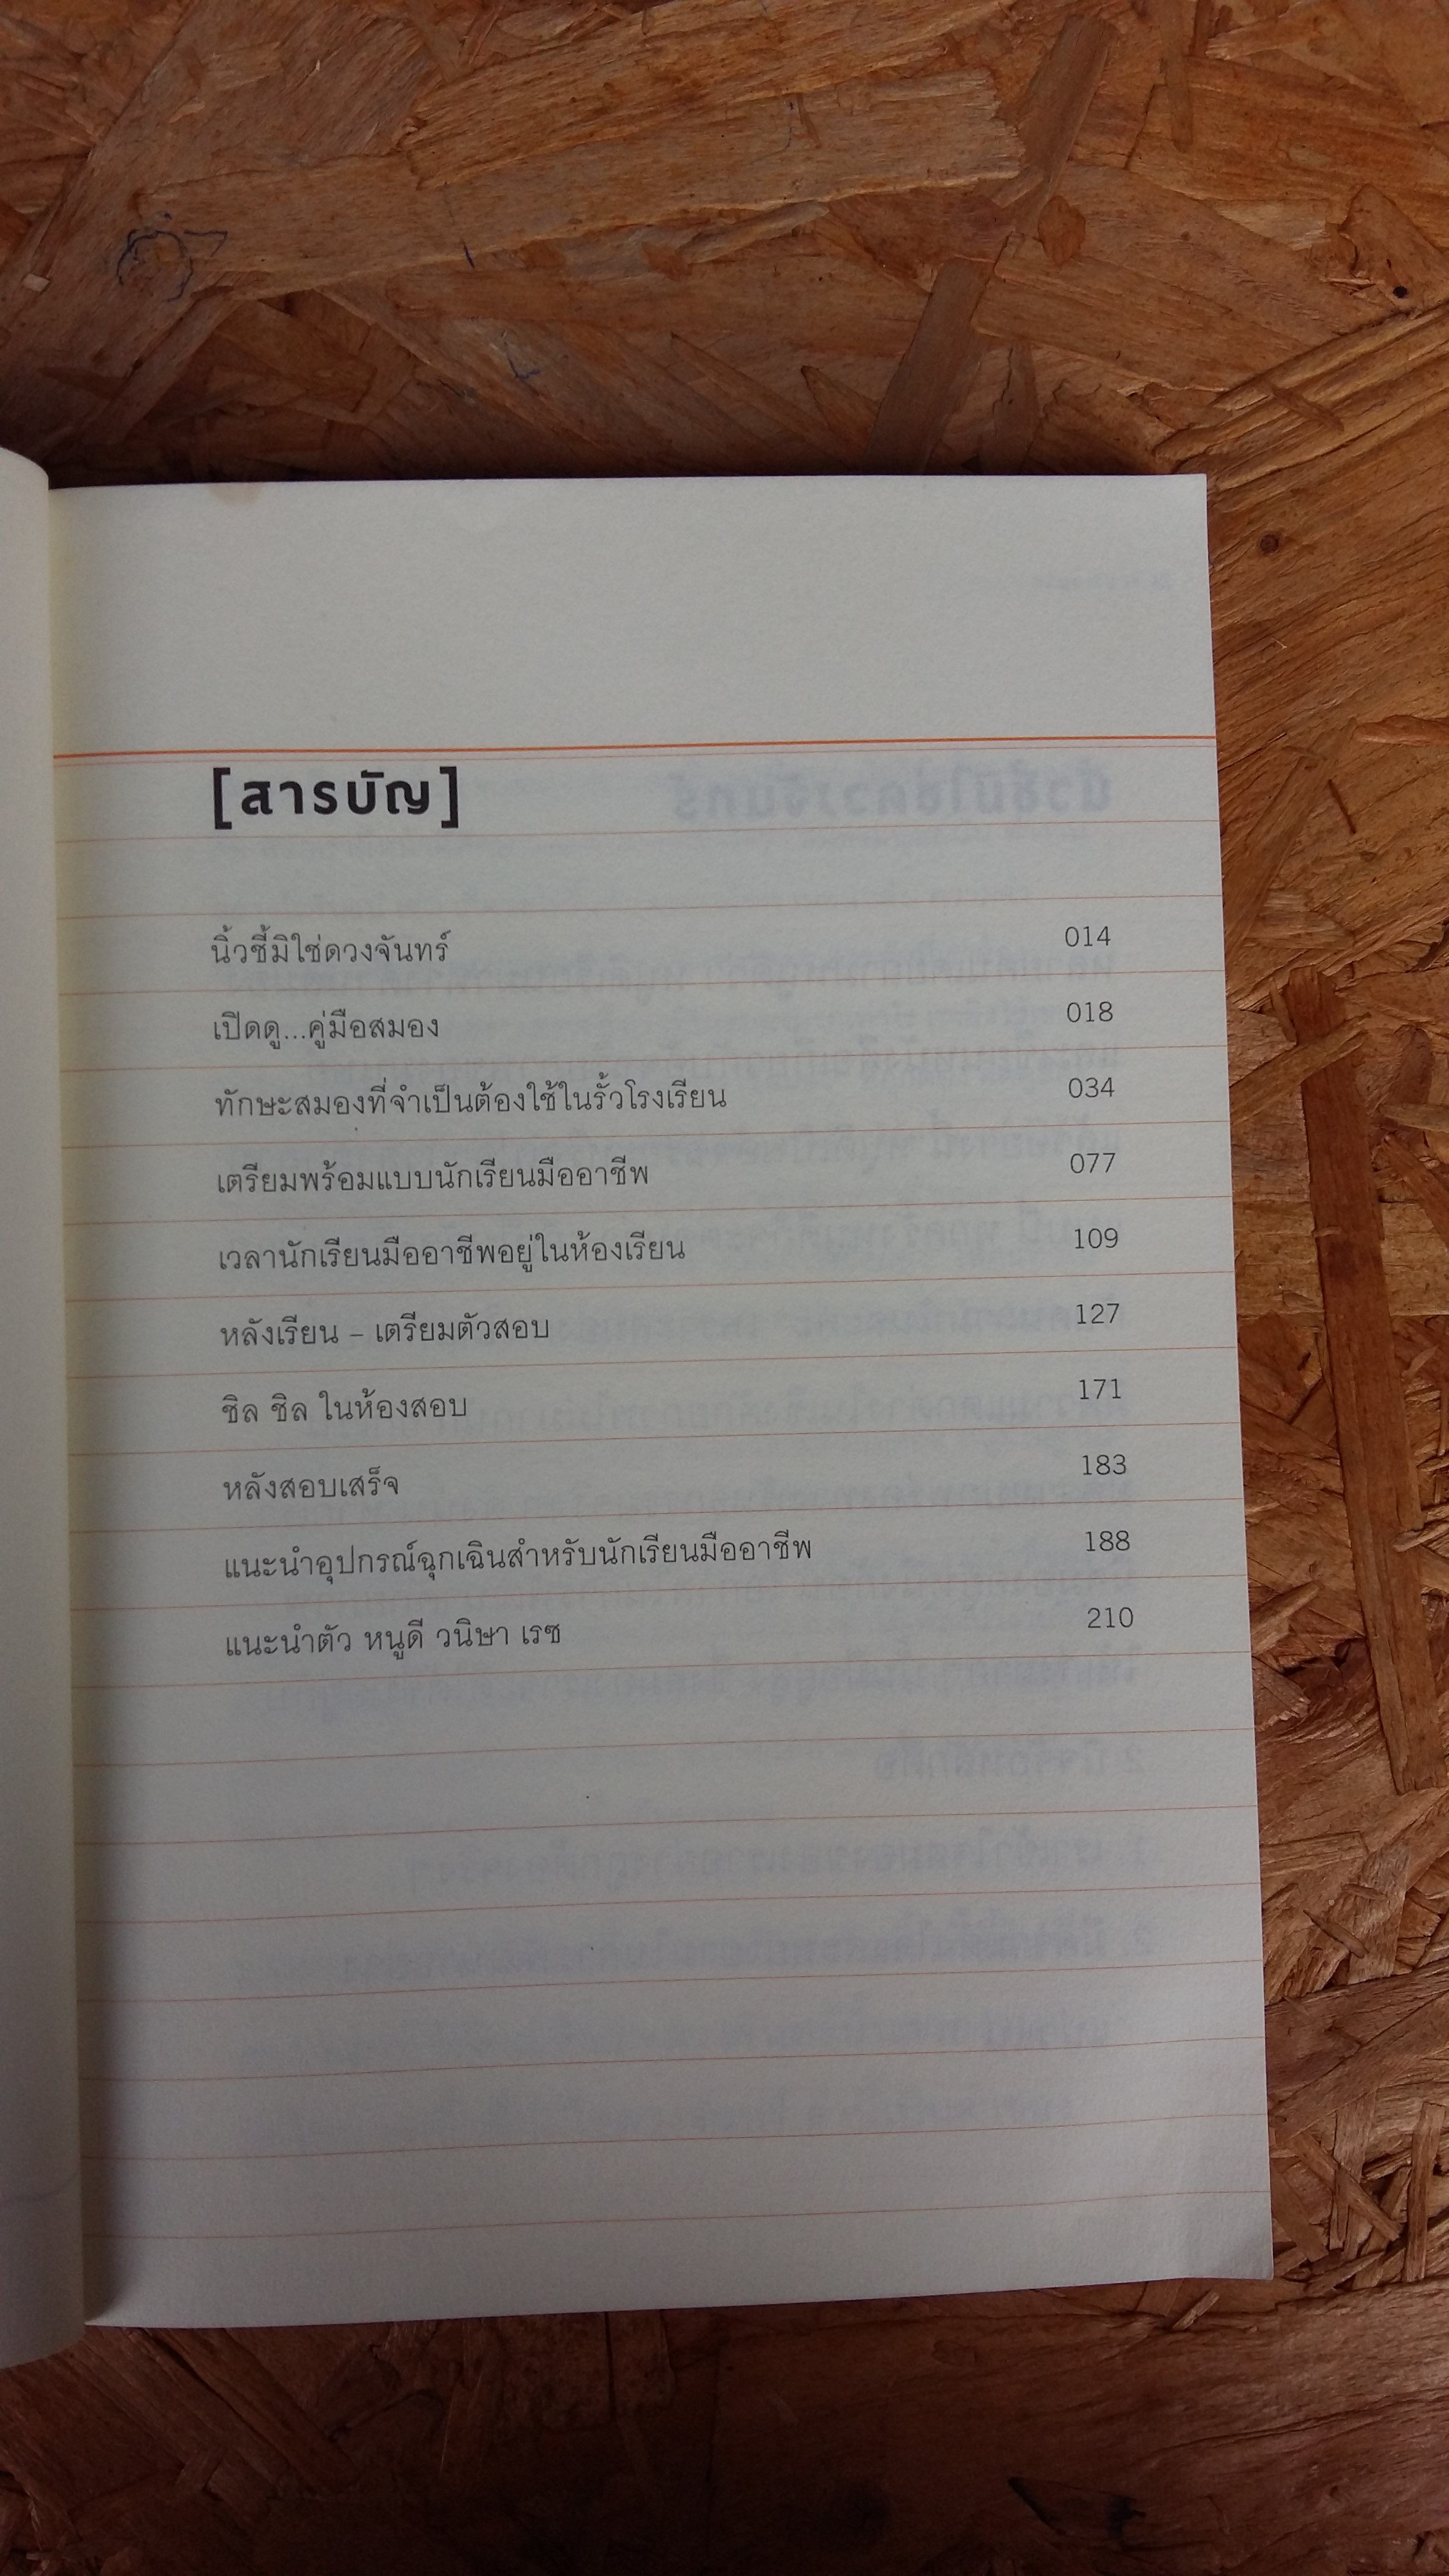 [สารบัญ]
นิ้วชี้มิใช่ดวงจันทร์ 014
เปิดดู...คู่มือสมอง 018
ทักษะสมองที่จำเป็นต้องใช้ในรั้วโรงเรียน 034
เตรียมพร้อมแบบนักเรียนมืออาชีพ 077
เวลานักเรียนมืออาชีพอยู่ในห้องเรียน 109
หลังเรียน – เตรียมตัวสอบ 127
ชิล ชิล ในห้องสอบ 171
หลังสอบเสร็จ 183
แนะนำอุปกรณ์ฉุกเฉินสำหรับนักเรียนมืออาชีพ 188
แนะนำตัว หนูดี วนิษา เรซ 210